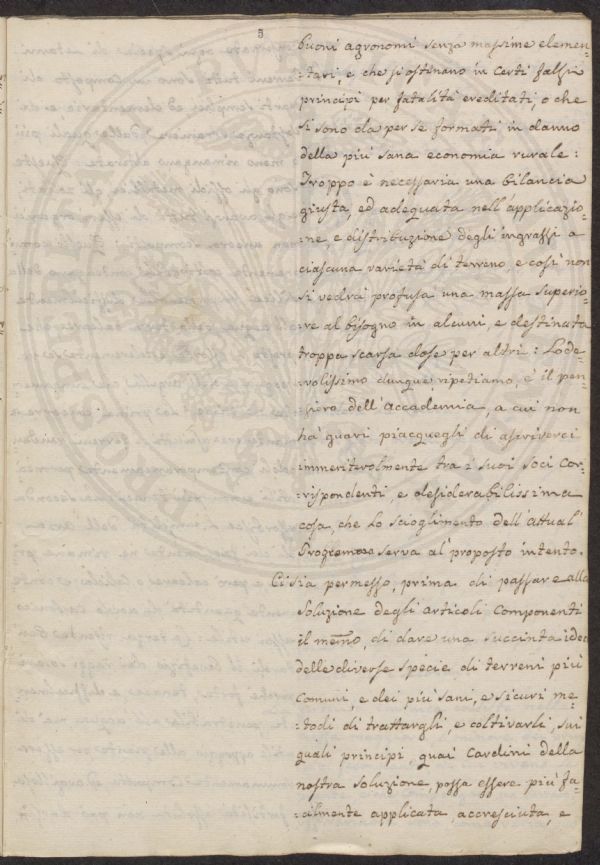 5
buoni agronomi senza massime elemen-
:tari, e che si ostinano in certi falsi
principi per fatalità ereditati, o che
si sono da per se formati in danno
della più sana economia rurale:
Troppo è necessaria una bilancia
giusta, ed adequata nell'applicazio-
:ne, e distribuzione degli ingrassi a
ciascuna varietà di terreno e così non
si vedrà profusa una massa superio-
:re al bisogno in alcuni e destinata
troppa scarsa dose per altri: Lode-
:volissimo dunque ripetiamo, è il pen-
:siero dell'Accademia, a cui non
ha guari piacquegli di ascriverci
immeritevolmente tra i suoi soci Cor-
:rispondenti e desiderabilissima
cosa, che lo scioglimento dell'attual
Programma serva al proposto intento.
Ci sia permesso, prima di passare alla
Soluzione degli articoli Componenti
il med.mo, di dare una succinta idea
delle diverse specie di terreni più
Comuni, e dei più sani, e sicuri me-
:todi di trattargli, e coltivarli, sui
quali principi, quai Cardini della
nostra soluzione, possa essere più fa-
:cilmente applicata, accresciuta, e